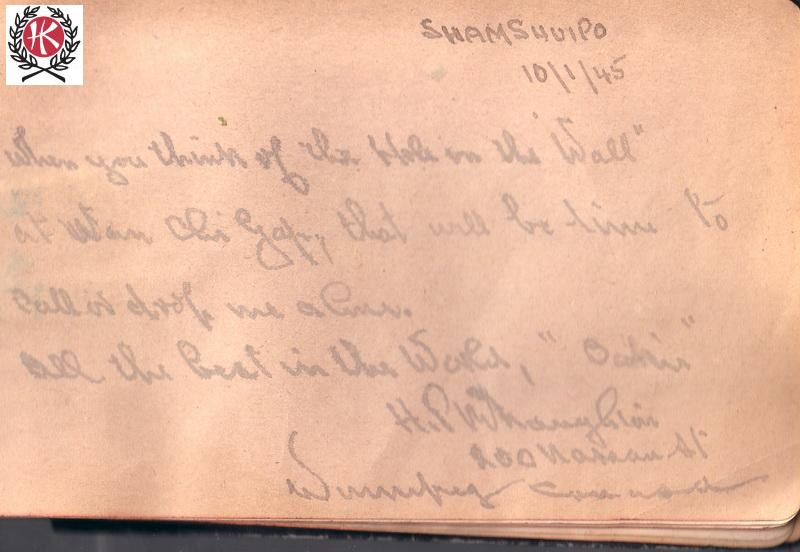 HK
SHAMSHUIPO
10/1/45
when you think of "the Hole in the Wall"
at Wan Chi Gap, that will be time to
call or drop me a line.
All the best in the World, " "
H.
200 Nassau St
Winnipeg Canada